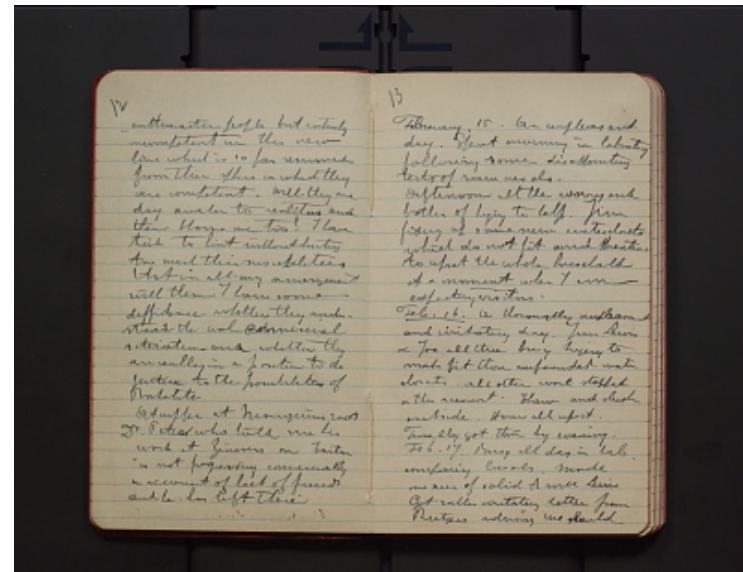 12
enthusiastic people but entirely
incompetent in this new
line which is so far removed
from their
are competent. Will they one
day awaken to realities and
then blame me too? I have
tried to hint without hurting
too much their susceptibilities
But in all my arrangement
with them I have some
diffidence whether they under-
stand the real commercial
situation and whether they
are really in a position to do
justice to the possibilities of
Bakelite
at
Dr. who told me his
work at on
is not progressing commercially
on account of lack of funds
and he has left there
13
February 15. An unpleasant
day. Spent morning in laboratory
following some disappointing
tests of
Afternoon at the wrong end
Jim
fixing up some new waterclosets
which do not fit and threaten
to upset the whole household
at a moment when I am
expecting visitors.
Feb. 16. A thoroughly unpleasant
and irritating day. Jim Lewis
& Joe all three busy trying to
make fit those confounded water
closets. All other work stopped
as the result. Thaw and slush
outside. House all upset.
Finally got thru by evening.
Feb. 17. Busy all day in lab.
comparing Made
of solid A
Got rather irritating letter from
advising we should